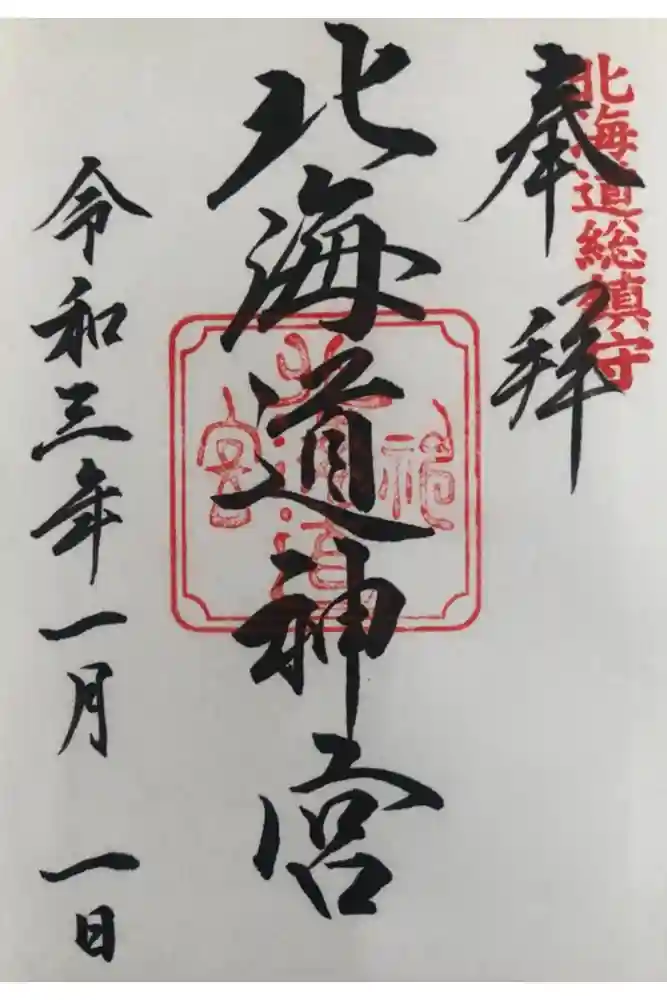 北海道総鎮守
奉拝
北海道神宮
令和三年一月一日